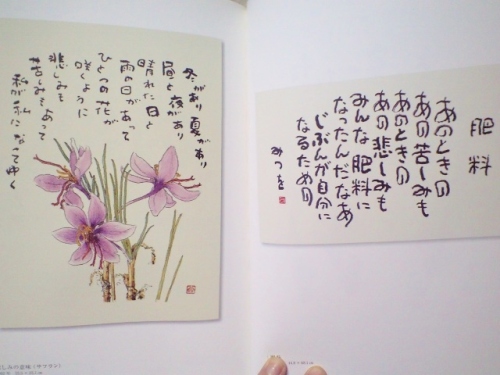 冬があり夏があり
昼と夜があり
晴れた日と
雨の日があって
ひとつの花が
咲くように
悲しみも
苦しみもあって
私が私になってゆく
しみの意味(サフラン)
肥料
あのときの
あの苦しみも
あのときの
あの悲しみも
みんな肥料に
なったんだなあ
じぶんが自分に
なるための
みつを